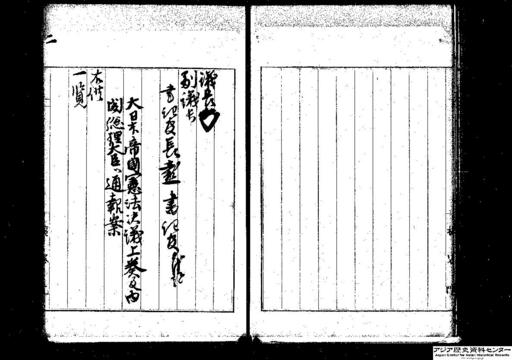 議長
副議長
書記官長 書記官
大日本帝國憲法決議上奏及内
閣総理大臣ヘ通報案
右供
一覧
アジア歴史資料センター
Japan Center for Asian Historical Records